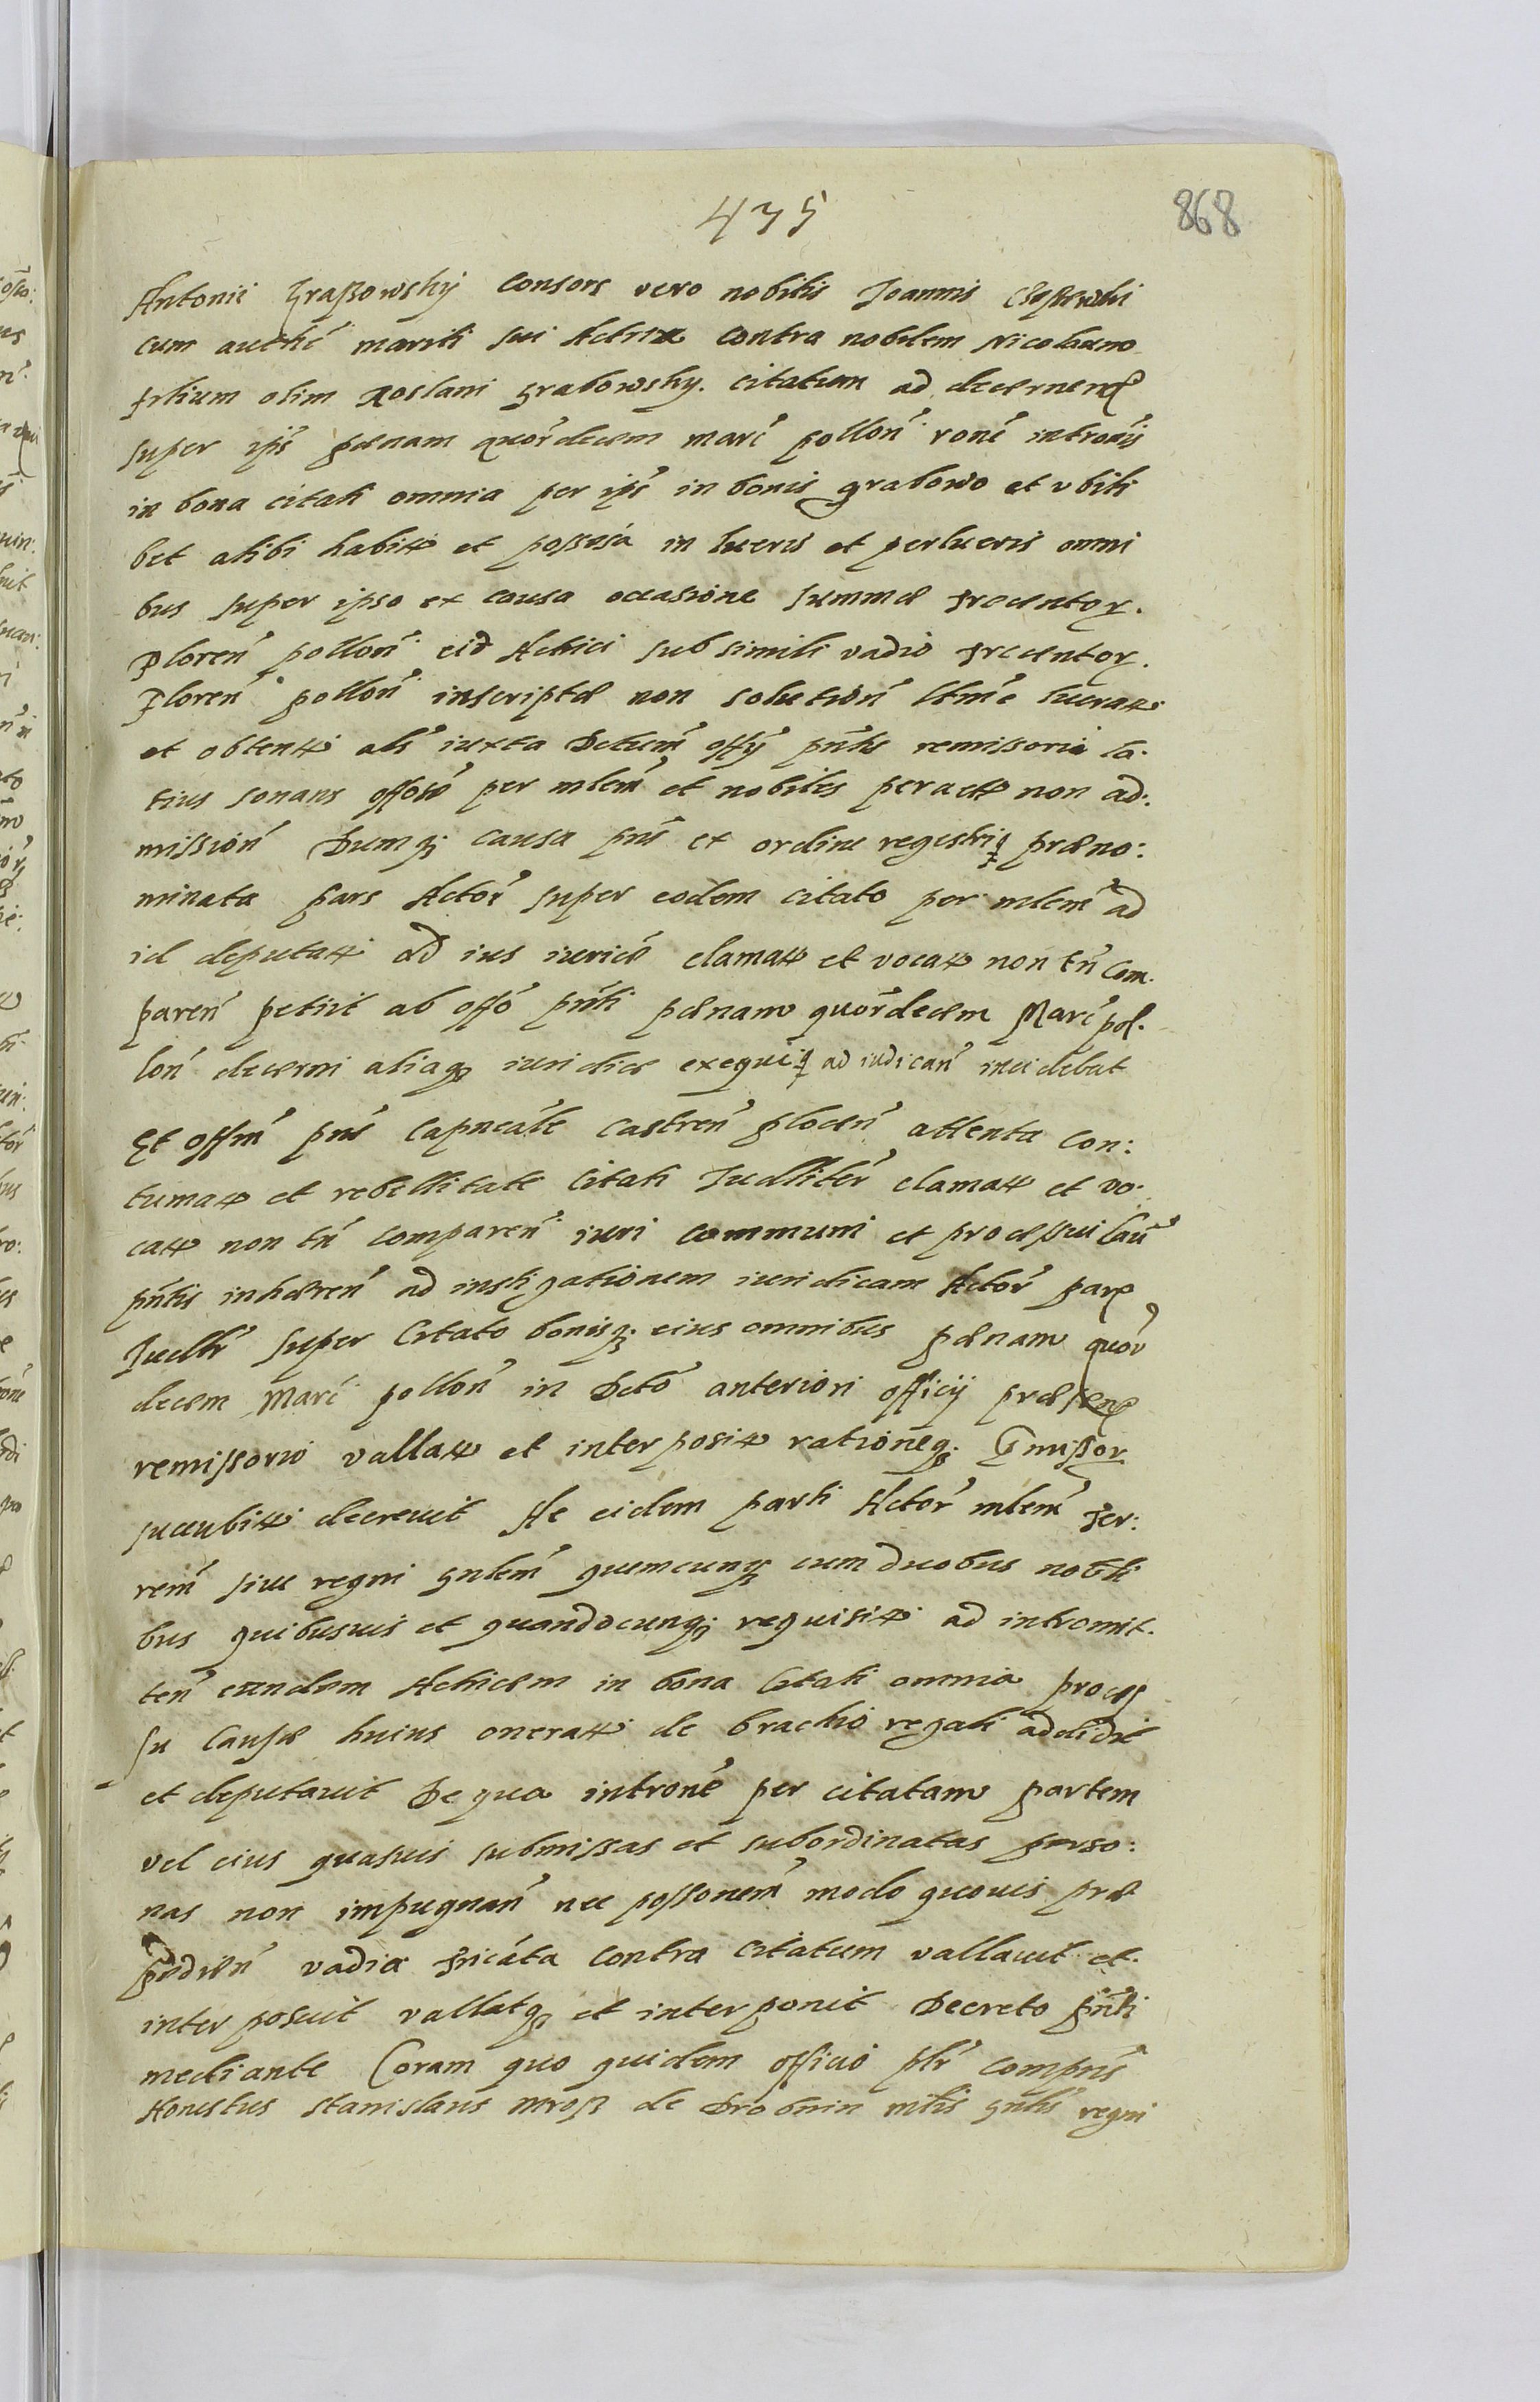 435
868
Antonii Graßowskÿ consors vero nobilis Joannis
cum auth͠e mariti sui Actrix contra nobilem Nicolaum
filium olim Roslani Grabowsky. citatum ad decernen͠
super ip͠s pænam quor͠decem marc͠ pollon͠ ron͠e introm͠is
in bona citati omnia per ip͠s in bonis grabowo et vbili
bet alibi habit͠ et possesa in lucris et perlucris omni
bus super ipso ex causa occasione summæ trecentor͠.
Floren͠ pollon͠ eid͠ Actrici sub simili vadio trecentor͠.
Floren͠ pollon͠ inscriptæ non solution͠ lt͠me lucrat͠
et obtent͠ al͠s iuxta Dctum͠ offÿ pn͠tis remissoria la:
tius sonans off͠o per mlem͠ et nobiles peract͠ non ad:
mission͠ Dumq; causa pn͠s ex ordine regestri præno:
minata pars Actor͠ super eodem citato per mlem͠ ad
id deputat͠ ad ius iurice clamat͠ et vocat͠ non tn͠ com.
paren͠ petiit ab off͠o pn͠ti pænam quor͠decem Marc͠ pol.
lon͠ decerni aliaq; iuridice exequi ad iudican͠ incidebat
Et offm͠ pn͠s Capnea͠le castren͠ plocen͠ attenta con:
tumat͠ et rebellitate Citati Judlliter͠ clamat͠ et vo:
cat͠ non tn͠ comparen͠ iuri communi et processui cau͠
pn͠tis inhæren͠ ad instigationem iuridicam Actor͠ part͠
Judllr͠ super Citato bonisq; eius omnibus pænam quor͠
decem Marc͠ pollon͠ in Dcto͠ anteriori officij præsen͠
remissorio vallat͠ et interposit͠ rationeq;
succubit͠ decrevit Ac eidem parti Actor͠ mlem͠ ter:
rem͠ siue regni gnlem͠ quemcunq; cum duobus nobili
bus quibusuis et quandocunq; requisit͠ ad intromit.
ten͠ eandem Actricem in bona Citati omnia proces
su causæ huius onerat͠ de brachio regali addidit
et deputavit De qua intron͠e per citatam partem
vel eius quasuis submissas et subordinatas perso:
nas non impugnan͠ nec posson͠em modo quovis præ
pedien͠ vadia tricen͠ta contra citatum vallavit et.
interposuit vallatq; et interponit Decreto pn͠ti
mediante Coram quo quidem officio pl͠r compn͠s
Honestus Stanislaus Mroß de Drobnin mlis͠ gnlis͠ regni